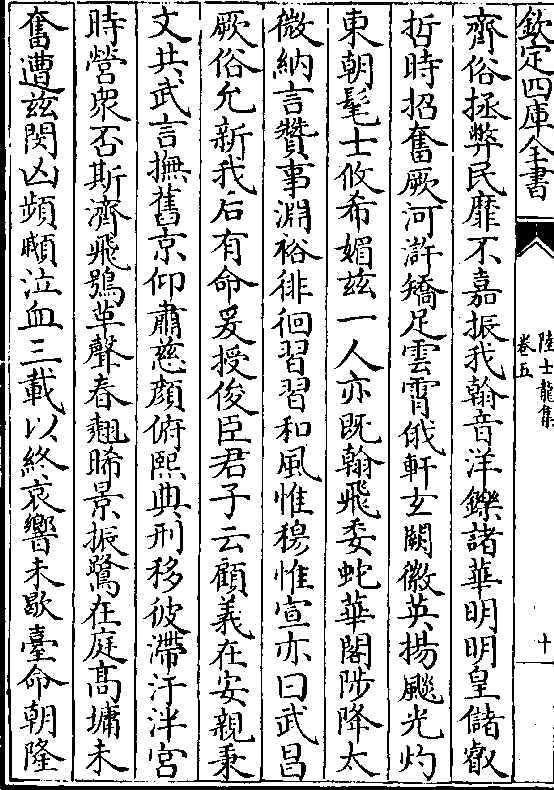 欽定四庫全書
陸士龍集
卷五
十
齊俗拯弊民靡不嘉振我翰音洋鑠諸華明明皇儲叡
哲時招奮厥河滸矯足雲霄俄軒玄闕徽英揚飈光灼
東朝髦士攸希媚兹一人亦既翰飛委蛇華閣陟降太
微納言贊事淵裕徘徊習習和風惟穆惟宣亦曰武昌
厥俗允新我后有命爰授俊臣君子云顧義在安親秉
文共武言撫舊京仰肅慈顔俯熙典刑移彼滯汙泮宫
時營衆否斯濟飛鴞革聲春翹晞景振鷺在庭髙墉未
奮遭兹閔凶頻顣泣血三載以終哀響未歇臺命朝隆